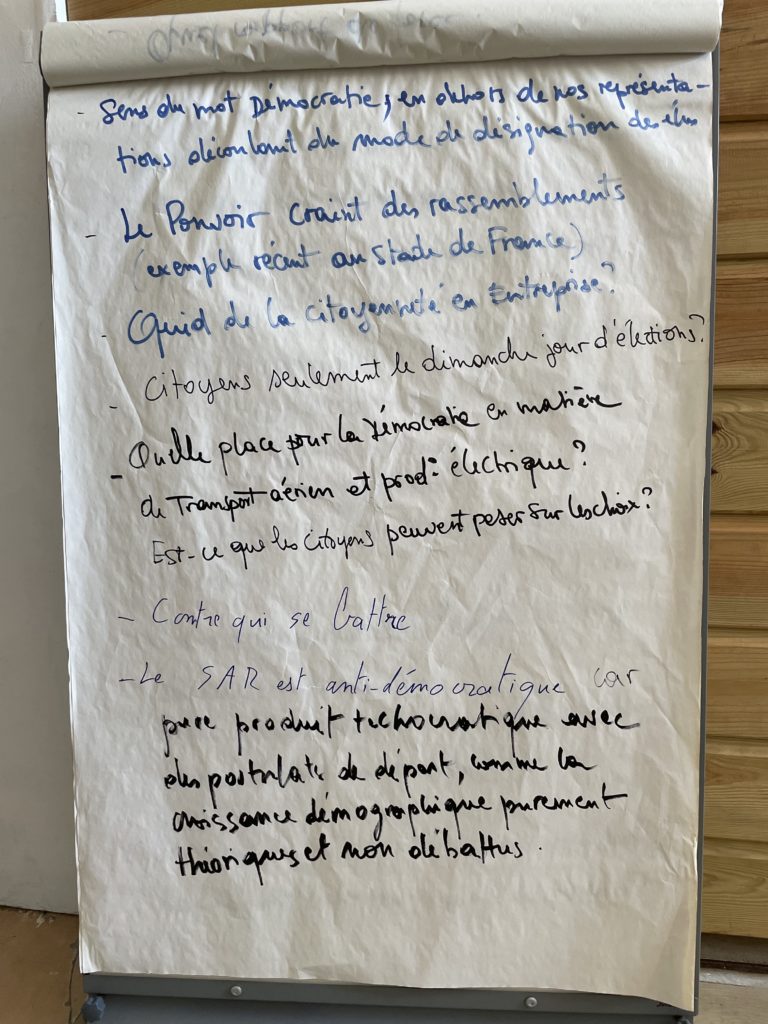 - Sens du mot Démocratie, en dehors de nos représenta-
tions découlant du mode de désignation des élus
- Le Pouvoir craint des rassemblements
(exemple récent au Stade de France)
- Quid de la citoyenneté en Entreprise?
- Citoyens seulement le dimanche jour d'élections?
- Quelle place pour la Démocratie en matière
de Transport aérien et prod° électrique?
Est-ce que les citoyens peuvent peser sur les choix?
- Contre qui se battre
- Le SAR est anti-démocratique car
pure produit techocratique avec
des postulats de départ, comme la
croissance démographique purement
théoriques et non débattus.